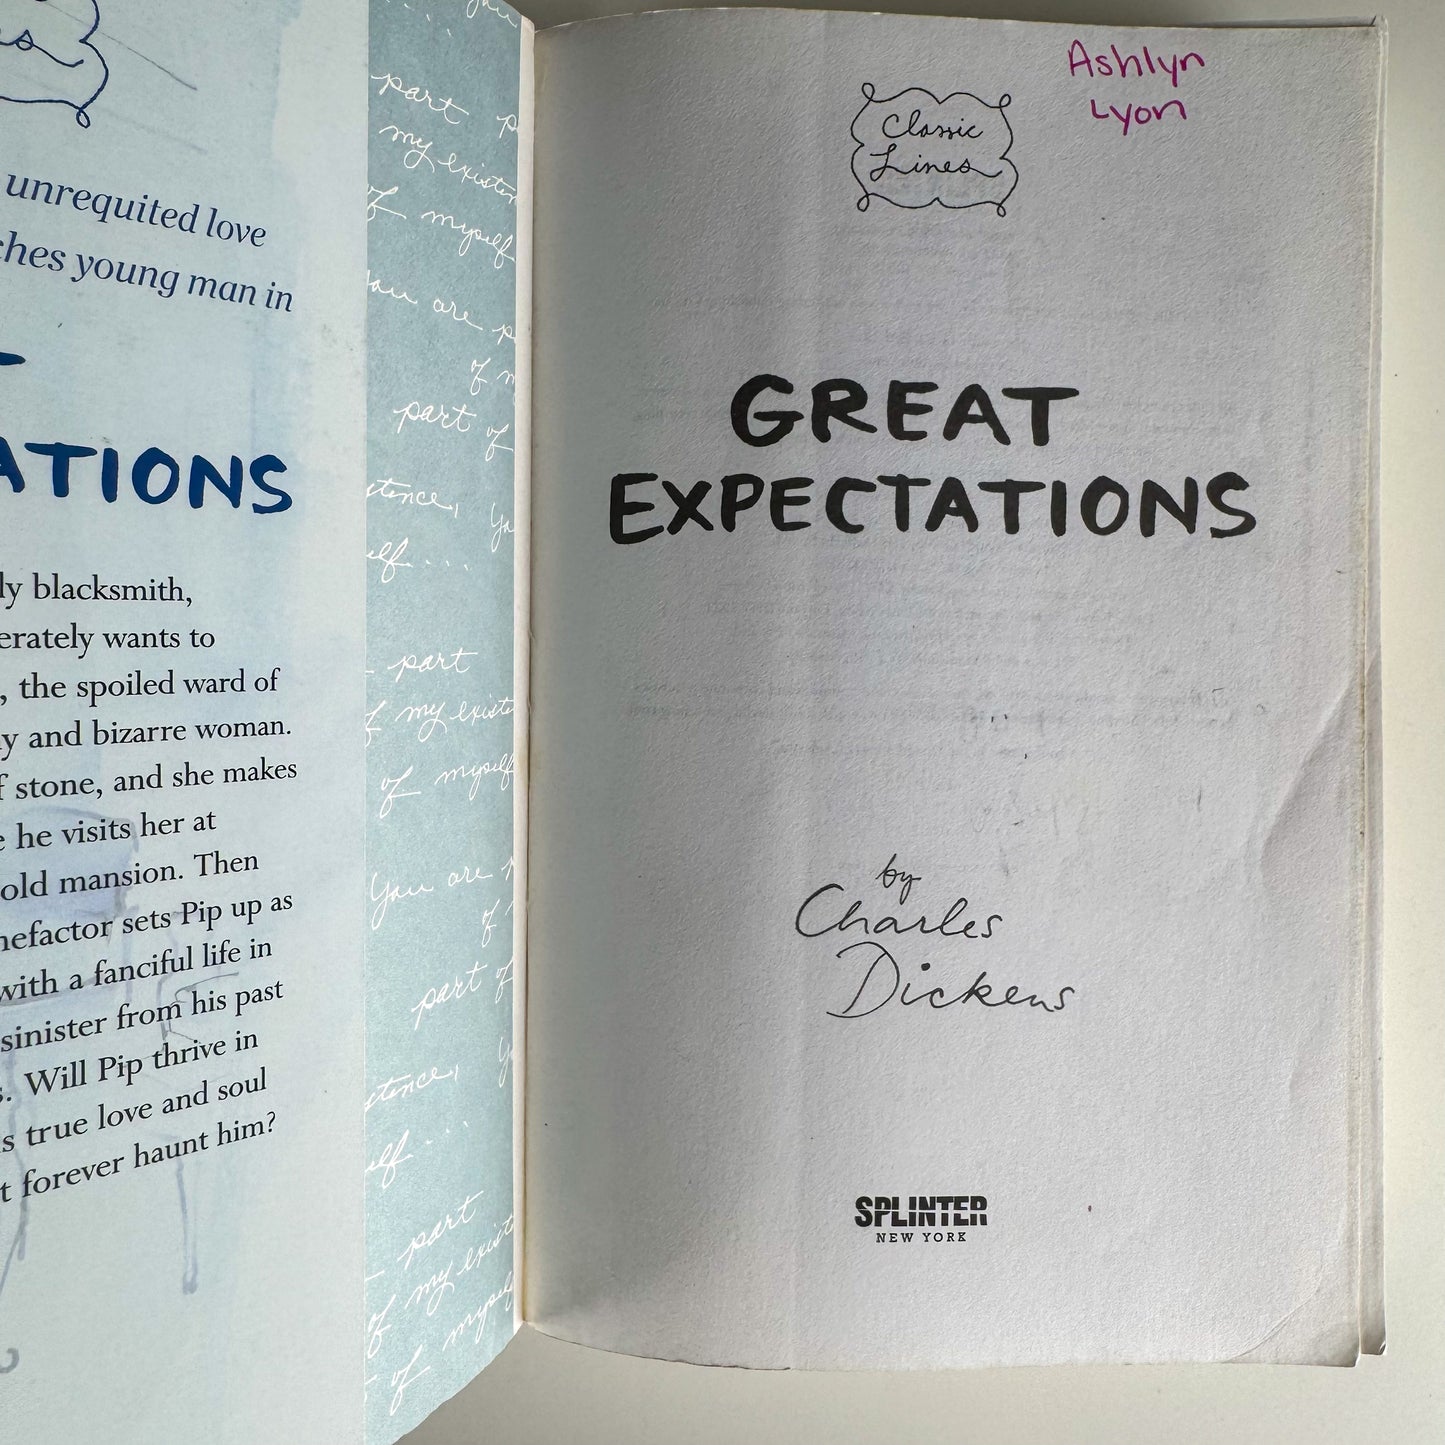 unrequited love
ches young man in
ATIONS
ly blacksmith,
erately wants to
, the spoiled ward of
y and bizarre woman.
f stone, and she makes
e he visits her at
old mansion. Then
nefactor sets Pip up as
with a fanciful life in
sinister from his past
s. Will Pip thrive in
s true love and soul
t forever haunt him?
you
part p
my existen
of myself
You are p
of m
part of
stence, Yo
elf....
part
of my existe
of myself
You are p
of
part of
stence, Y
elf....
part
of my exist
of myself
of
Ashlyn
Lyon
Classic
Lines
GREAT
EXPECTATIONS
by
Charles
Dickens
SPLINTER
NEW YORK